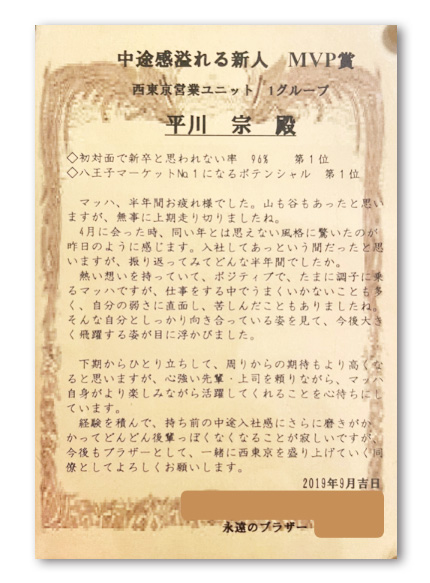 中途感溢れる新人　MVP賞
西東京営業ユニット　1グループ
平川　宗　殿
◇初対面で新卒と思われない率　96%　　第1位
◇八王子マーケットNo.1になるポテンシャル　第1位
マッハ、半年間お疲れ様でした。山も谷もあったと思い
ますが、無事に上期走り切りましたね。
4月に会った時、同い年とは思えない風格に驚いたのが
昨日のように感じます。入社してあっという間だったと思
いますが、振り返ってみてどんな半年間でしたか。
熱い想いを持っていて、ポジティブで、たまに調子に乗
るマッハですが、仕事をする中でうまくいかないことも多
く、自分の弱さに直面し、苦しんだこともありましたね。
そんな自分としっかり向き合っている姿を見て、今後大き
く飛躍する姿が目に浮かびました。
下期からひとり立ちして、周りからの期待もより高くな
ると思いますが、心強い先輩・上司を頼りながら、マッハ
自身がより楽しみながら活躍してくれることを心待ちにし
ています。
経験を積んで、持ち前の中途入社感にさらに磨きがか
かってどんどん後輩っぽくなくなることが寂しいですが、
今後もブラザーとして、一緒に西東京を盛り上げていく同
僚としてよろしくお願いします。
2019年9月吉日
永遠のブラザー